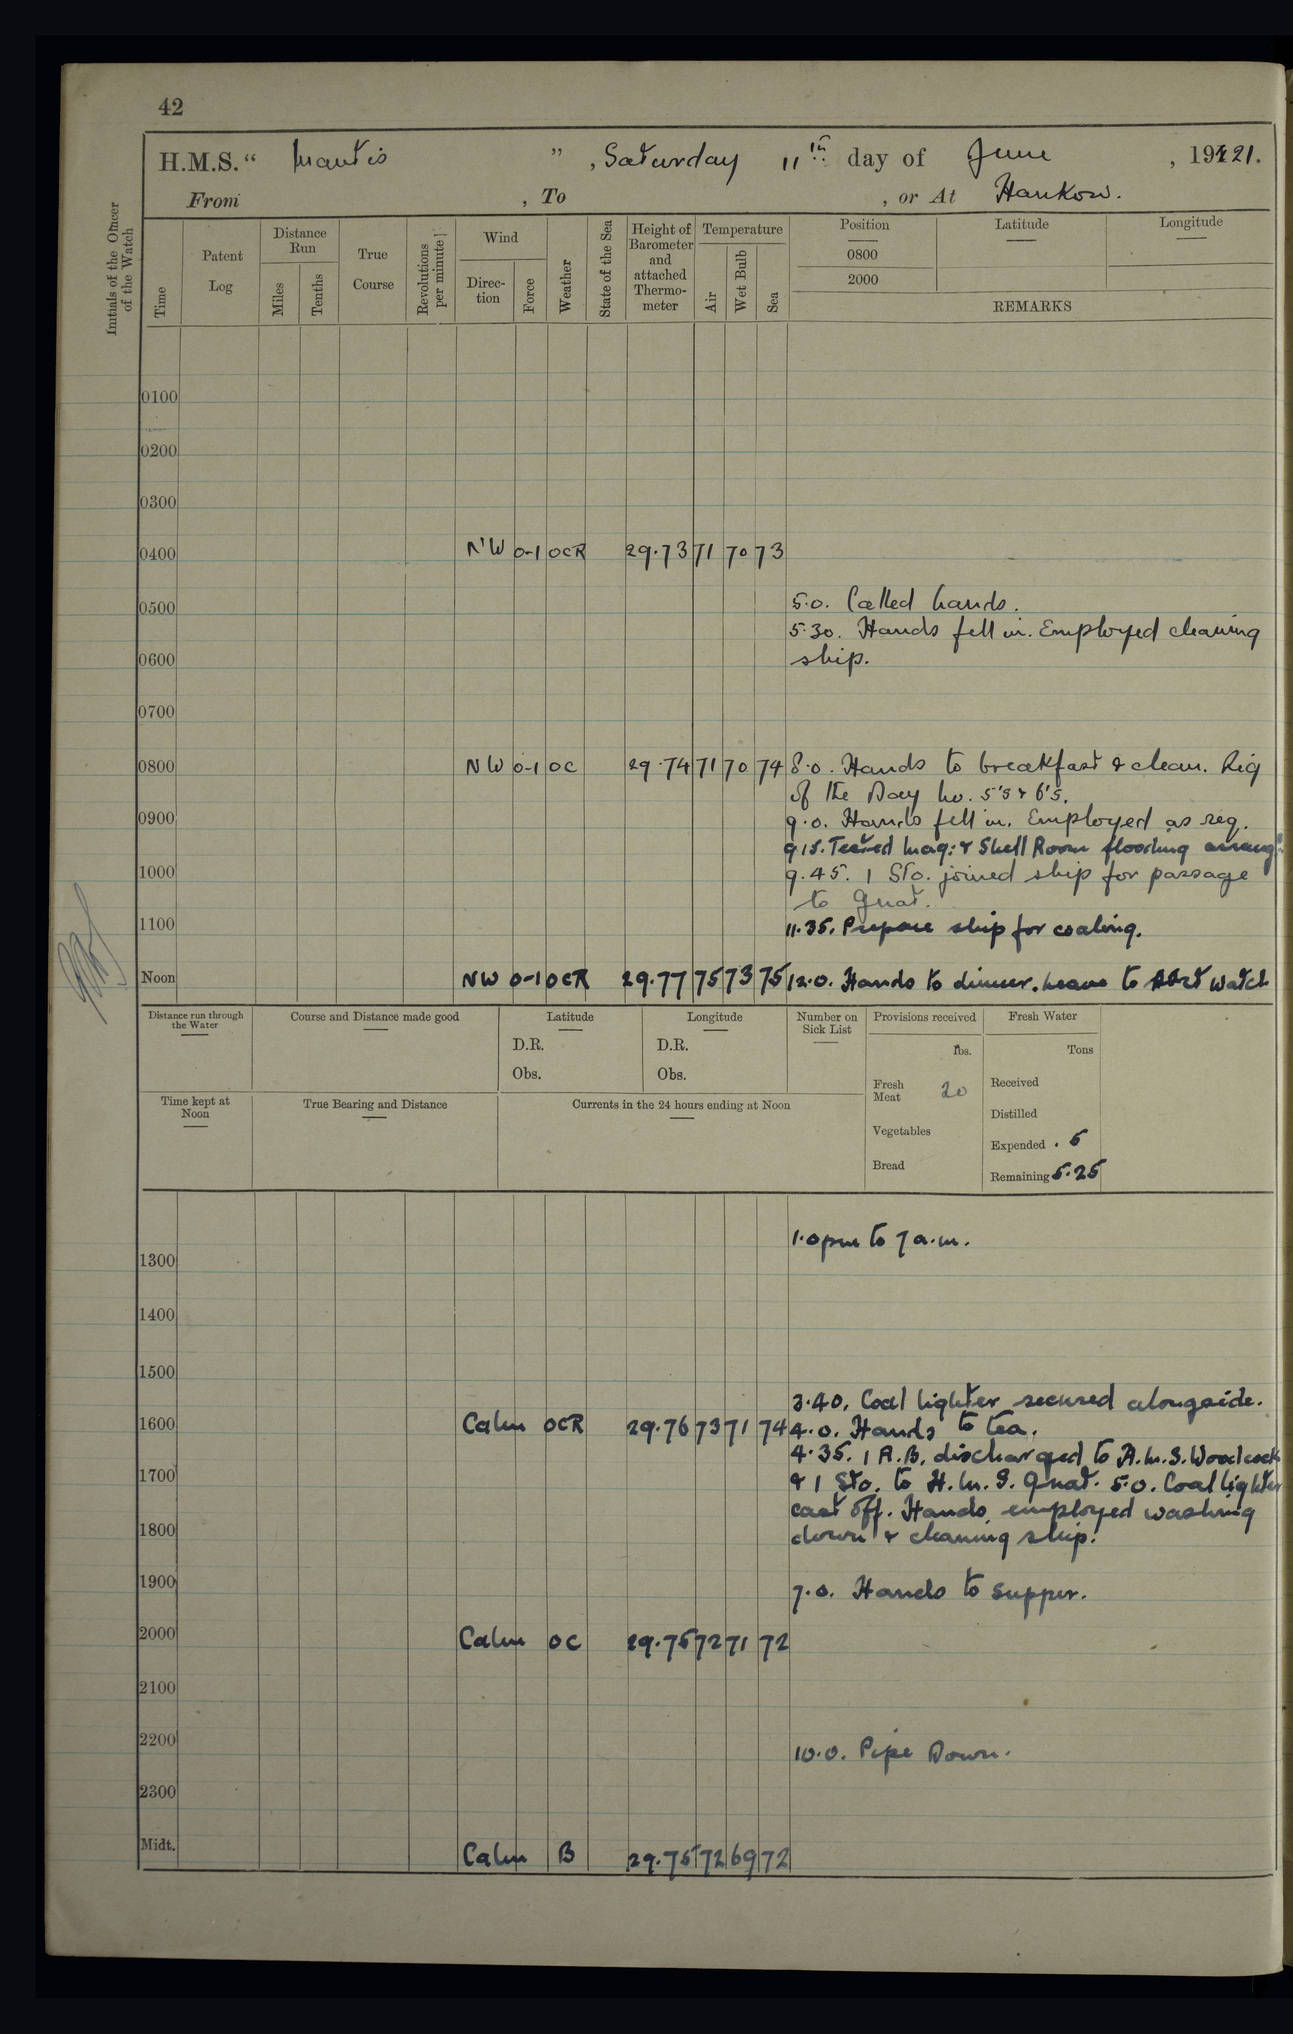 42
H.M.S. “ Mantis ” , Saturday 11th day of June , 1921.
From , To , or At Hankow.
Initials of the Officer of the Watch
Time
Patent Log
Distance Run
Miles
Tenths
True Course
Revolutions per minute
Wind
Direc-tion
Force
Weather
State of the Sea
Height of Barometer and attached Thermo-meter
Temperature
Air
Wet Bulb
Sea
Position
0800
2000
Latitude
Longitude
REMARKS
0100
0200
0300
0400 NW 0-1 OCR 29.73 71 70 73
0500 5.0. Called hands.
5.30. Hands fell in. Employed cleaning
0600 ship.
0700
0800 NW 0-1 OC 29.74 71 70 74 8.0. Hands to breakfast & clean. Rig
of the Day No. 5's & 6's.
0900 9.0. Hands fell in. Employed as req.
9.15. Tested Mag: & Shell Room flooding arrang:
1000 9.45. 1 Sto. joined ship for passage
to Gnat.
1100 11.35. Prepare ship for coaling.
Noon NW 0-1 OCR 29.77 75 73 75 12.0. Hands to dinner. Leave to watch
Distance run through the Water
Course and Distance made good
Latitude
D.R.
Obs.
Longitude
D.R.
Obs.
Number on Sick List
Provisions received
lbs.
Fresh Meat 20
Vegetables
Bread
Fresh Water
Tons
Received
Distilled
Expended .5
Remaining 5.25
Time kept at Noon
True Bearing and Distance
Currents in the 24 hours ending at Noon
1.0 pm to 7 a.m.
1300
1400
1500
3.40. Coal lighter secured alongside.
1600 Calm OCR 29.76 73 71 74 4.0. Hands to tea.
4.35. 1 A.B. discharged to H.M.S. Woodcock
1700 & 1 Sto. to H.M.S. Gnat. 5.0. Coal lighter
cast off. Hands employed washing
1800 down & cleaning ship.
1900 7.0. Hands to supper.
2000 Calm OC 29.75 72 71 72
2100
2200 10.0. Pipe Down.
2300
Midt. Calm B 29.75 72 69 72